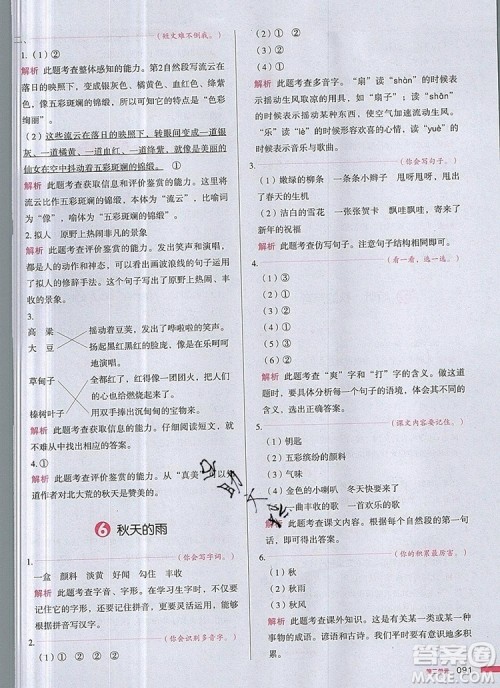 (难丈难不倒我。)
1.(1)①②
解析 此题考查整体感知的能力。第2自然段写流云在
落日的映照下,转眼变成银灰、橘黄、血红、绛紫
色,像五彩斑斓的锦缎,体现了流云的特点是“色彩
绚丽”。
(2)这些流云在落日的映照下,转眼间变成一道银
灰、一道橘黄、一道血红、一道绛紫,就像是美丽的
仙女在空中抖动着五彩斑斓的锦缎。①
解析 此题考查获取信息和评价鉴赏的能力。句子将
流云比作五彩斑斓的锦缎,有本体、有喻体,比喻词
为“像”,喻体为“五彩斑斓的锦缎”。
2. 拟人 原野上热闹非凡的景象
解析 此题考查评价鉴赏的能力。发出笑声和演唱,
都是人的动作和神态,因此可以判断句子运用了拟
人的修辞手法。这样写突出了原野上热闹、丰收的
景象
3.
高 粱 摇动着豆荚,发出了哗啦啦的笑声。
大 豆 扬起黑红黑红的脸庞,像是在乐呵呵
地演唱。
草甸子 变得火红一团一团火,
榛树叶子 双手捧出沉甸甸的宝物来。
解析 此题考查获取信息的能力。仔细阅读短文,就
不难从文中找出相对应的答案。
4.①
解析 此题考查评价的能力。从“真美”可以知
道作者对北大荒的秋天是赞美的。
6 秋天的雨
1. (你会写字词。)
一盒 颜料 淡黄 好闻 勾住 丰收
解析 此题考查字音、字形。在学习生字时,不但要
掌握字音、字形,还要掌握字义,这样在写作中才能
更好地灵活运用词语。做此类题时,要仔细审题,
根据拼音写词语。
2. (你会识别多音字。)
(1)② ① (2)② ① (3)① ②
解析 此题考查多音字。“扇”读“shàn”的时候
表示摇动生风取凉的用具,如“扇子”;读“shān”
的时候表示摇动扇子等,使空气加速流动生风。
“乐”读“lè”的时候形容欢喜的心情,读“yuè”的
时候表示音乐与歌曲。
3. (你会写句子。)
(1)嫩绿的柳条 一条条小辫子 甩呀甩呀 甩出
了春天的生机
(2)洁白的雪花 一张张贺卡 飘哇飘哇,寄来了
新年的祝福
解析 此题考查仿写句子。注意句子结构相同即可。
4. (看一看,选一选。)
(1)③
(2)①
(3)①
(4)②
(5)④
(6)②
解析 此题考查“爽”字和“打”字的含义。做题
时,要具体分析每一个句子的语境,体会其要表达的
含义,选出正确的答案。
5. (课文内容要记住。)
(1)钥匙
(2)五彩缤纷的颜料
(3)气味
(4)金色的小喇叭 冬天快要来了
一曲丰收的歌 一首欢乐的歌
解析 此题考查课文内容。根据课文相应的自然段填
写即可。
6. (你的积累很厉害。)
(1)秋
(2)秋雨
(3)秋风
(4)秋
解析 此题考查课外知识。这些句子都是和秋天有关
的成语、谚语和古诗。我们平时要多积累关于某一种
事物的成语、谚语和诗句,丰富自己的语言。
091